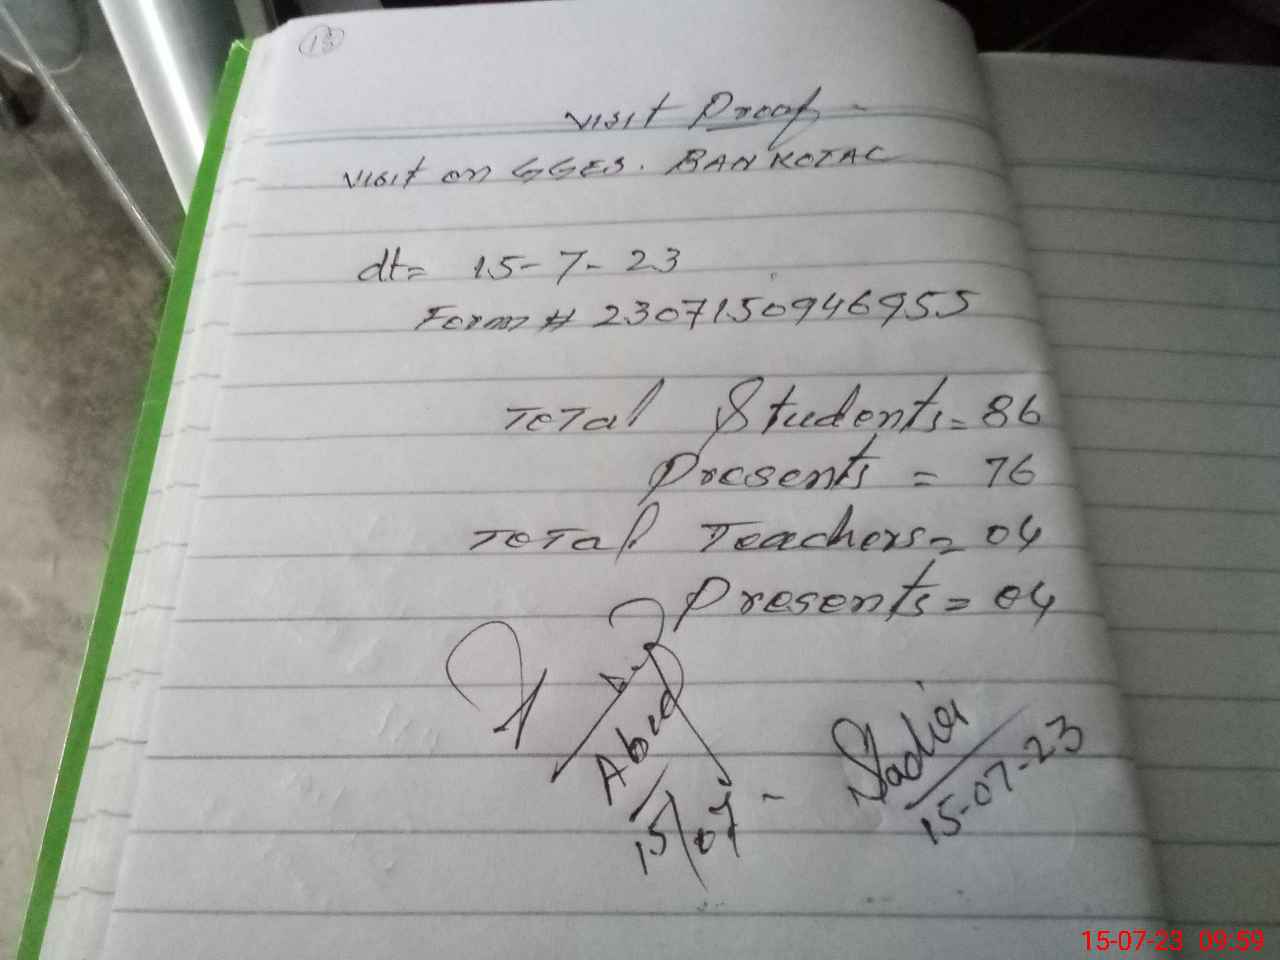 13
Visit Proof -
Visit on GGES. BAN KOTAC
dt= 15-7-23
Form # 2307150946955
Total Students = 86
Presents = 76
Total Teachers = 04
Presents = 04
Abid
15/07 -
Sadia
15-07-23
15-07-23 09:59